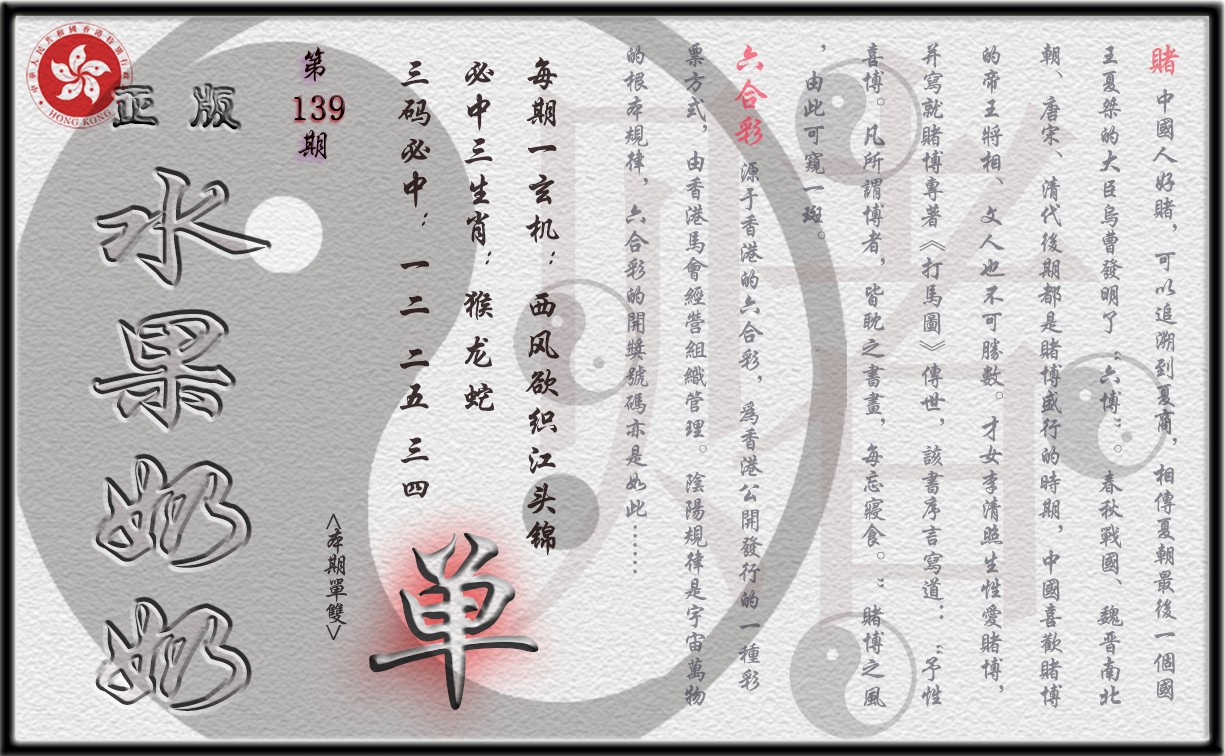 賭 中國人好賭，可以追溯到夏商，相傳夏朝最後一個國
王夏桀的大臣烏曹發明了“六博”。春秋戰國、魏晋南北
朝、唐宋、清代後期都是賭博盛行的時期，中國喜歡賭博
的帝王將相、文人也不可勝數。才女李清照生性愛賭博，
并寫就賭博專著《打馬圖》傳世，該書序言寫道：“予性
喜博。凡所謂博者，皆耽之書畫，每忘寢食。”賭博之風
，由此可窺一斑。
六合彩 源于香港的六合彩，爲香港公開發行的一種彩
票方式，由香港馬會經營組織管理。陰陽規律是宇宙萬物
的根本規律，六合彩的開獎號碼亦是如此……
每期一玄机：西风欲织江头锦
必中三生肖：猴龙蛇
三码必中：一二 二五 三四
单
<本期單雙>
第
139
期
正版
水果奶奶
中華人民共和國香港特別行政區
HONG KONG
賭